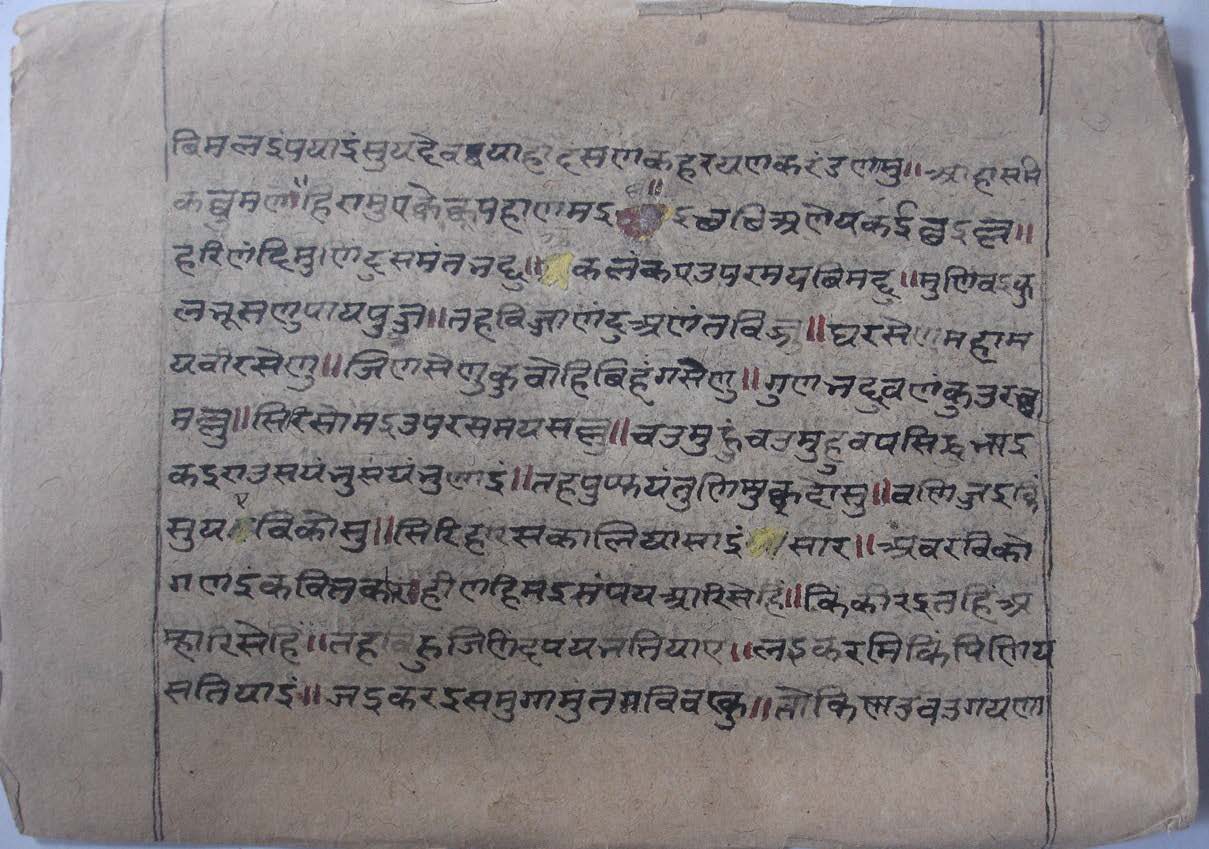 विमलइंपयाइंसुयदेवपयाहादसणकहरयणकरंडणामु॥आहासमि
कव्वमणोहिरामुएक्केक्कपहाणमइ इव्वविअणेयकईव्वइल्ल॥
हरिणंदिमुणिदुसमंतभद्दु॥कलंकपउपरमयविमद्दु॥मुणिवइकु
लभूसणुपायपुज्ज॥तहविज्जाणंदुअणंतविज्ज॥घरसेणमहाम
यवीरसेणु॥जिणसेणुकुवोहिविहंगसेणु॥गुणभद्दुवणंकुउरव्व
मल्लु॥सिरिसोमइउपरसमयसल्लु॥चउमुहुंचउमुहुवपसिद्धभाइ
कइणउसयंभुसयंभुणाइं॥तहपुप्फयंतुणिमुक्कदोसु॥वणिज्जइकिं
सुय विकोसु॥सिरिहारसकालियासाइं सार॥अवरविको
गणइंकवित्तकारा॥हीणहिमइसंपयआरिसेहिं॥किंकीरइतहिंअ
म्हारिसेहिं॥तहविहुजिणिंदपयभत्तियाए॥लइकरमिकिंपिणिय
सत्तियाइं॥जइकरइसमुग्गमुतमविवक्कु॥तोकिणउवउगयणा